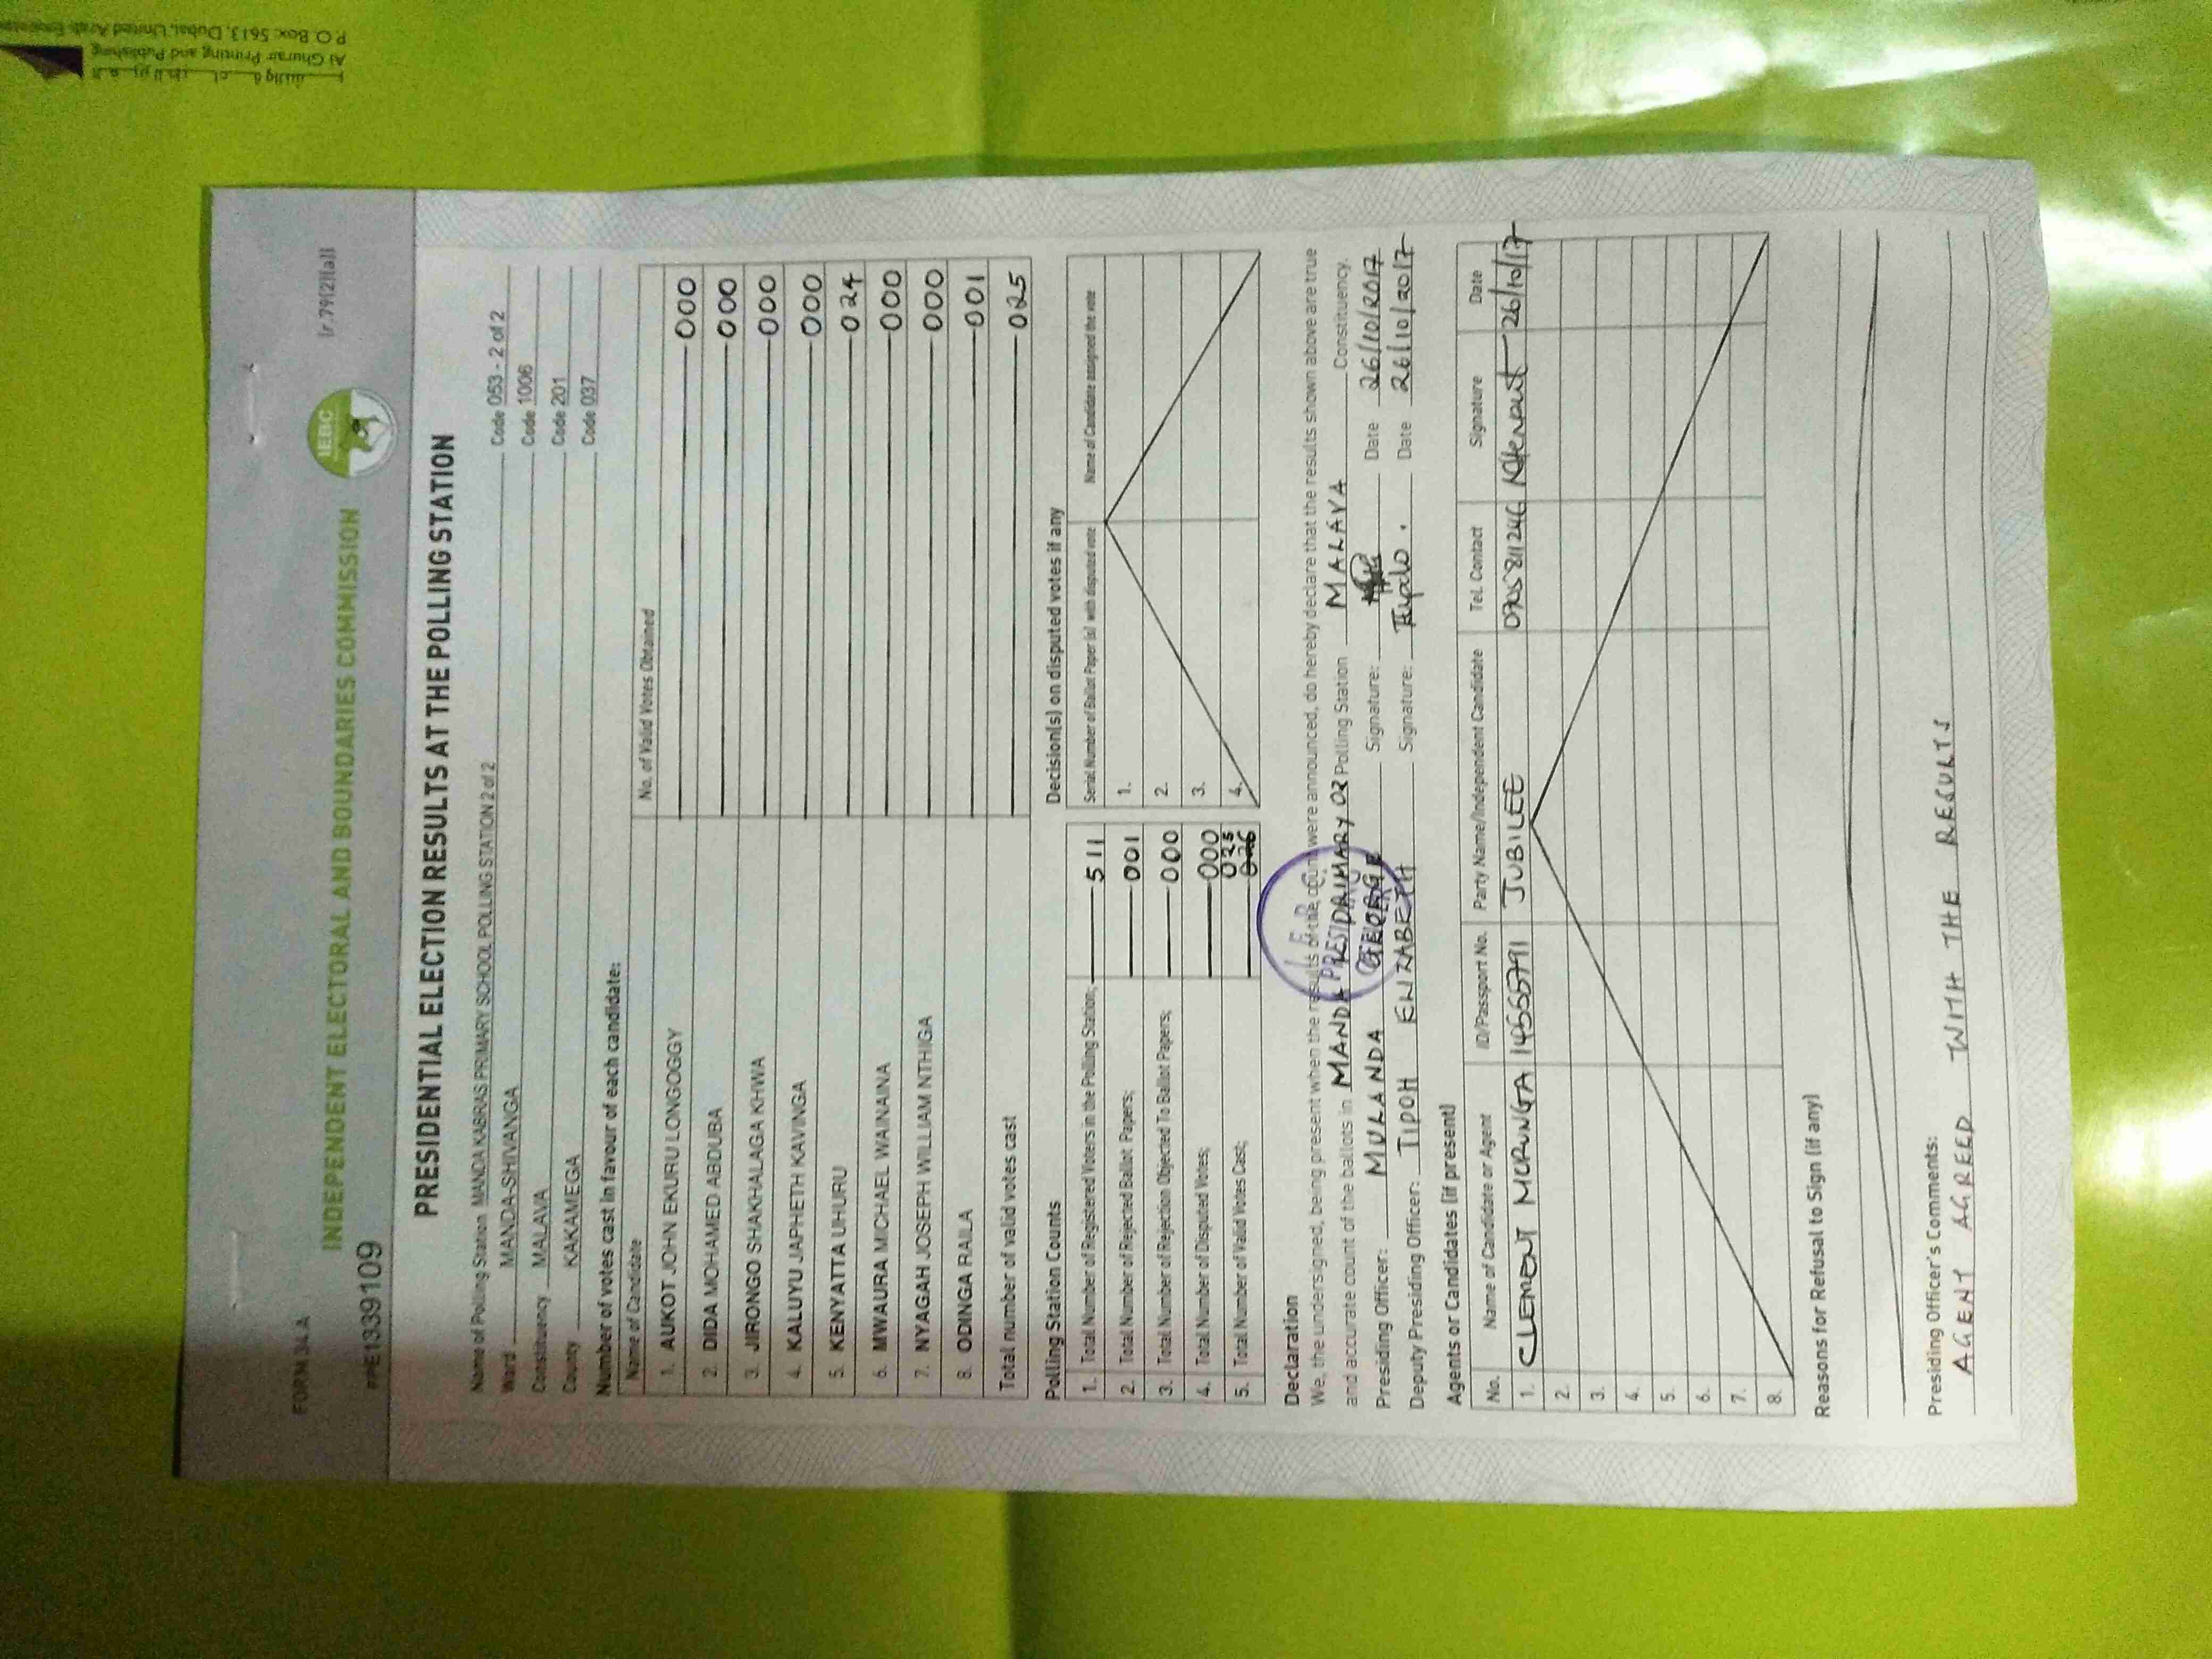 FORM 34 A
[r.79(2)(a)]
INDEPENDENT ELECTORAL AND BOUNDARIES COMMISSION
IEBC
PRESIDENTIAL ELECTION RESULTS AT THE POLLING STATION
Name of Polling Station MANDA KABRAS PRIMARY SCHOOL POLLING STATION 2 of 2 Code 053 - 2 of 2
Ward MANDA-SHIVANGA Code 1006
Constituency MALAVA Code 201
County KAKAMEGA Code 037
Number of votes cast in favour of each candidate:
Name of Candidate No. of Valid Votes Obtained
1. AUKOT JOHN EKURU LONGOGGY 000
2. DIDA MOHAMED ABDUBA 000
3. JIRONGO SHAKHALAGA KHWA 000
4. KALUYU JAPHETH KAVINGA 000
5. KENYATTA UHURU 024
6. MWAURA MICHAEL WAINAINA 000
7. NYAGAH JOSEPH WILLIAM NTHIGA 000
8. ODINGA RAILA 001
Total number of valid votes cast 025
Polling Station Counts
1. Total Number of Registered Voters in the Polling Station; 511
2. Total Number of Rejected Ballot Papers; 001
3. Total Number of Rejection Objected To Ballot Papers; 000
4. Total Number of Disputed Votes; 000
5. Total Number of Valid Votes Cast; 025 026
Decision(s) on disputed votes if any
Serial Number of Ballot Paper (s) with disputed vote Name of Candidate assigned the vote
1.
2.
3.
4.
Declaration
We, the undersigned, being present when the results of the count were announced, do hereby declare that the results shown above are true
and accurate count of the ballots in MANDA Polling Station MALAVA Constituency.
Presiding Officer: MULANDA GEORGE Signature: Date 26/10/2017
Deputy Presiding Officer: TIPOH ELIZABETH Signature: Date 26/10/2017
Agents or Candidates (if present)
No. Name of Candidate or Agent ID/Passport No. Party Name/Independent Candidate Tel. Contact Signature Date
1. CLEMENT JUBILEE 26/10/17
2.
3.
4.
5.
6.
7.
8.
Reasons for Refusal to Sign (if any)
Presiding Officer's Comments:
AGENT AGREED WITH THE RESULTS
Al Ghurair Printing and Publishing
P.O. Box: 5613, Dubai, United Arab Emirates